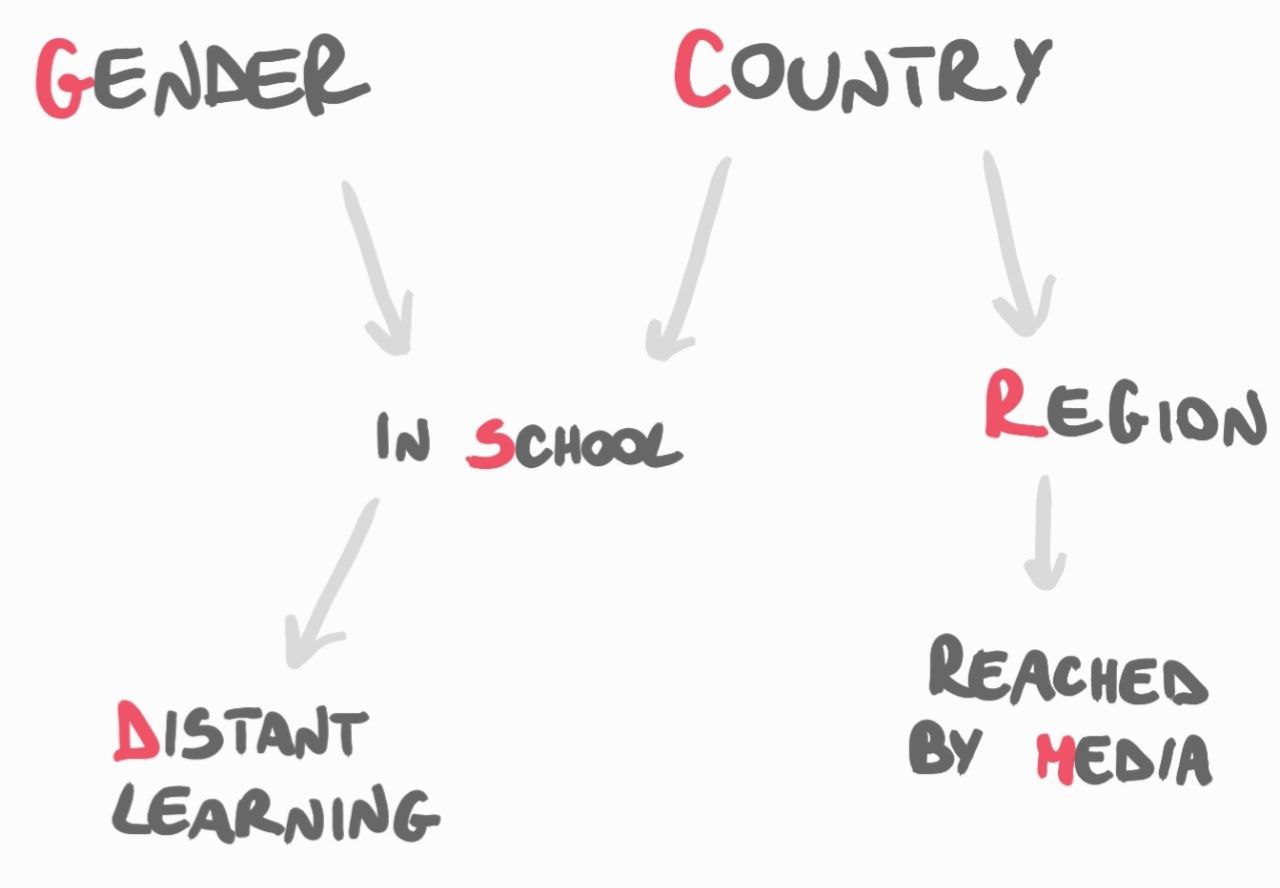 GENDER
COUNTRY
IN SCHOOL
REGION
DISTANT
LEARNING
REACHED
BY MEDIA